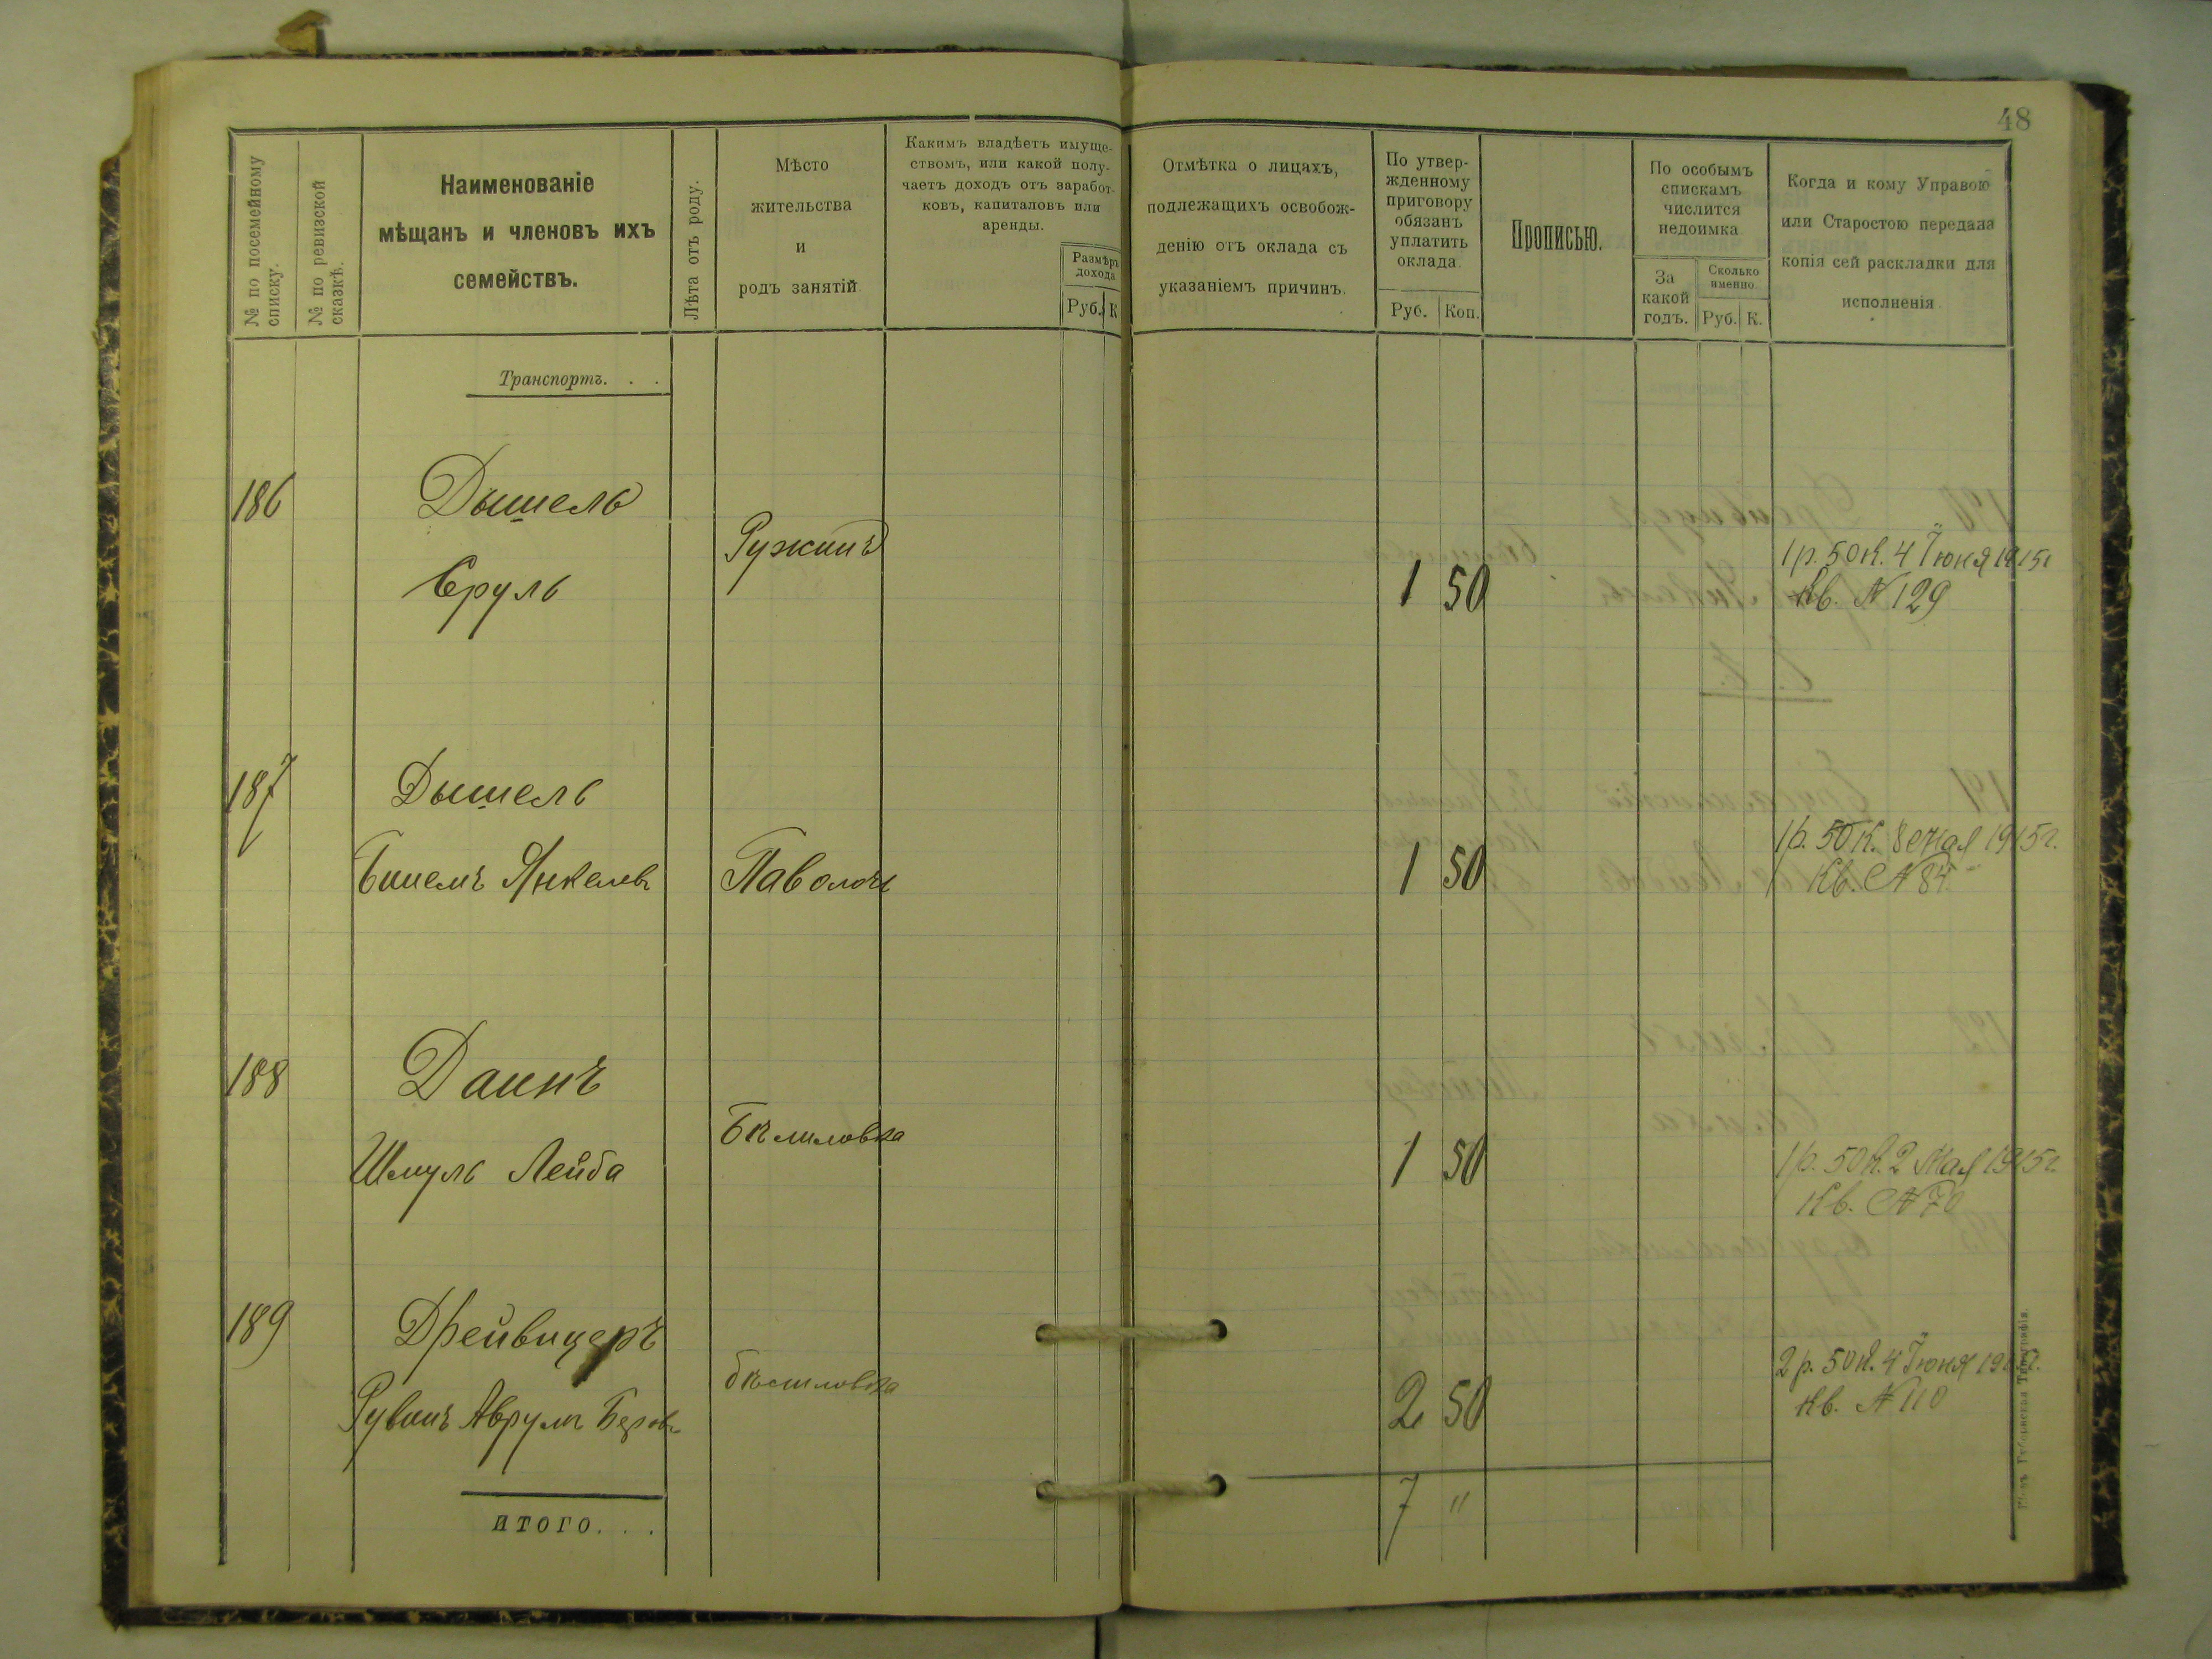 48
№ по посемейному
списку.
№ по ревизской
сказкѣ.
Наименованіе
мѣщанъ и членовъ ихъ
семействъ.
Лѣта отъ роду.
Мѣсто
жительства
и
родъ занятій.
Какимъ владѣетъ имуще-
ствомъ, или какой полу-
чаетъ доходъ отъ заработ-
ковъ, капиталовъ или
аренды.
Размѣръ
дохода
Руб. К
Отмѣтка о лицахъ,
подлежащихъ освобож-
денію отъ оклада съ
указаніемъ причинъ.
По утвер-
жденному
приговору
обязанъ
уплатить
оклада.
Руб. Коп.
Прописью.
По особымъ
спискамъ
числится
недоимка
За
какой
годъ.
Сколько
именно.
Руб. К.
Когда и кому Управою
или Старостою передана
копія сей раскладки для
исполненія.
Транспортъ. . .
186 Дышель
Сруль
Ружинъ
1 50
1 р. 50 к. 4 Іюня 1915г
Кв. № 129
187 Дышель
Янкелев
Паволочь
1 50
1 р. 50 к. 8 Мая 1915г.
Кв. № 84
188 Даинъ
Шмуль Лейба
Бѣлиловка
1 50
1 р. 50 к. 2 Мая 1915г
Кв. № 70
189 Дрейвицеръ
Рувинъ Аврумъ Беров
Бѣлиловка
2 50
2 р. 50 к. 4 Іюня 1915г.
Кв. № 110
итого. . .
7 "